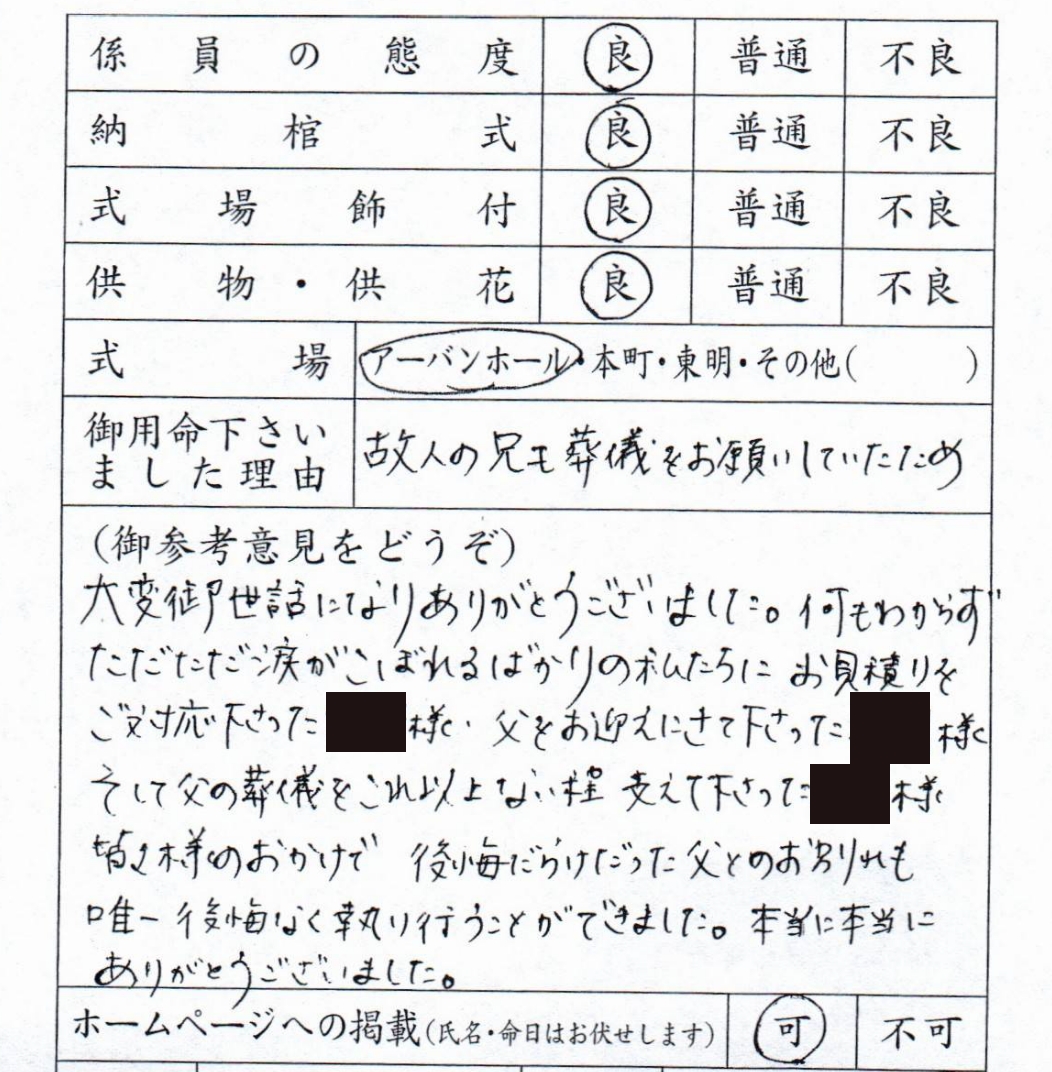 係員の態度 良 普通 不良
納棺式 良 普通 不良
式場飾付 良 普通 不良
供物・供花 良 普通 不良
式場 アーバンホール・本町・東明・その他( )
御用命下さい
ました理由
故人の兄も葬儀をお願いしていたため
(御参考意見をどうぞ)
大変御世話になりありがとうございました。何もわからず
ただただ涙がこぼれるばかりの私たちに お見積りを
ご対応下さった 様 父をお迎えにきて下さった 様
そして父の葬儀をこれ以上ない程 支えて下さった 様
皆々様のおかげで 後悔だらけだった父とのお別れも
唯一後悔なく執り行うことができました。本当に本当に
ありがとうございました。
ホームページへの掲載(氏名・命日はお伏せします) 可 不可